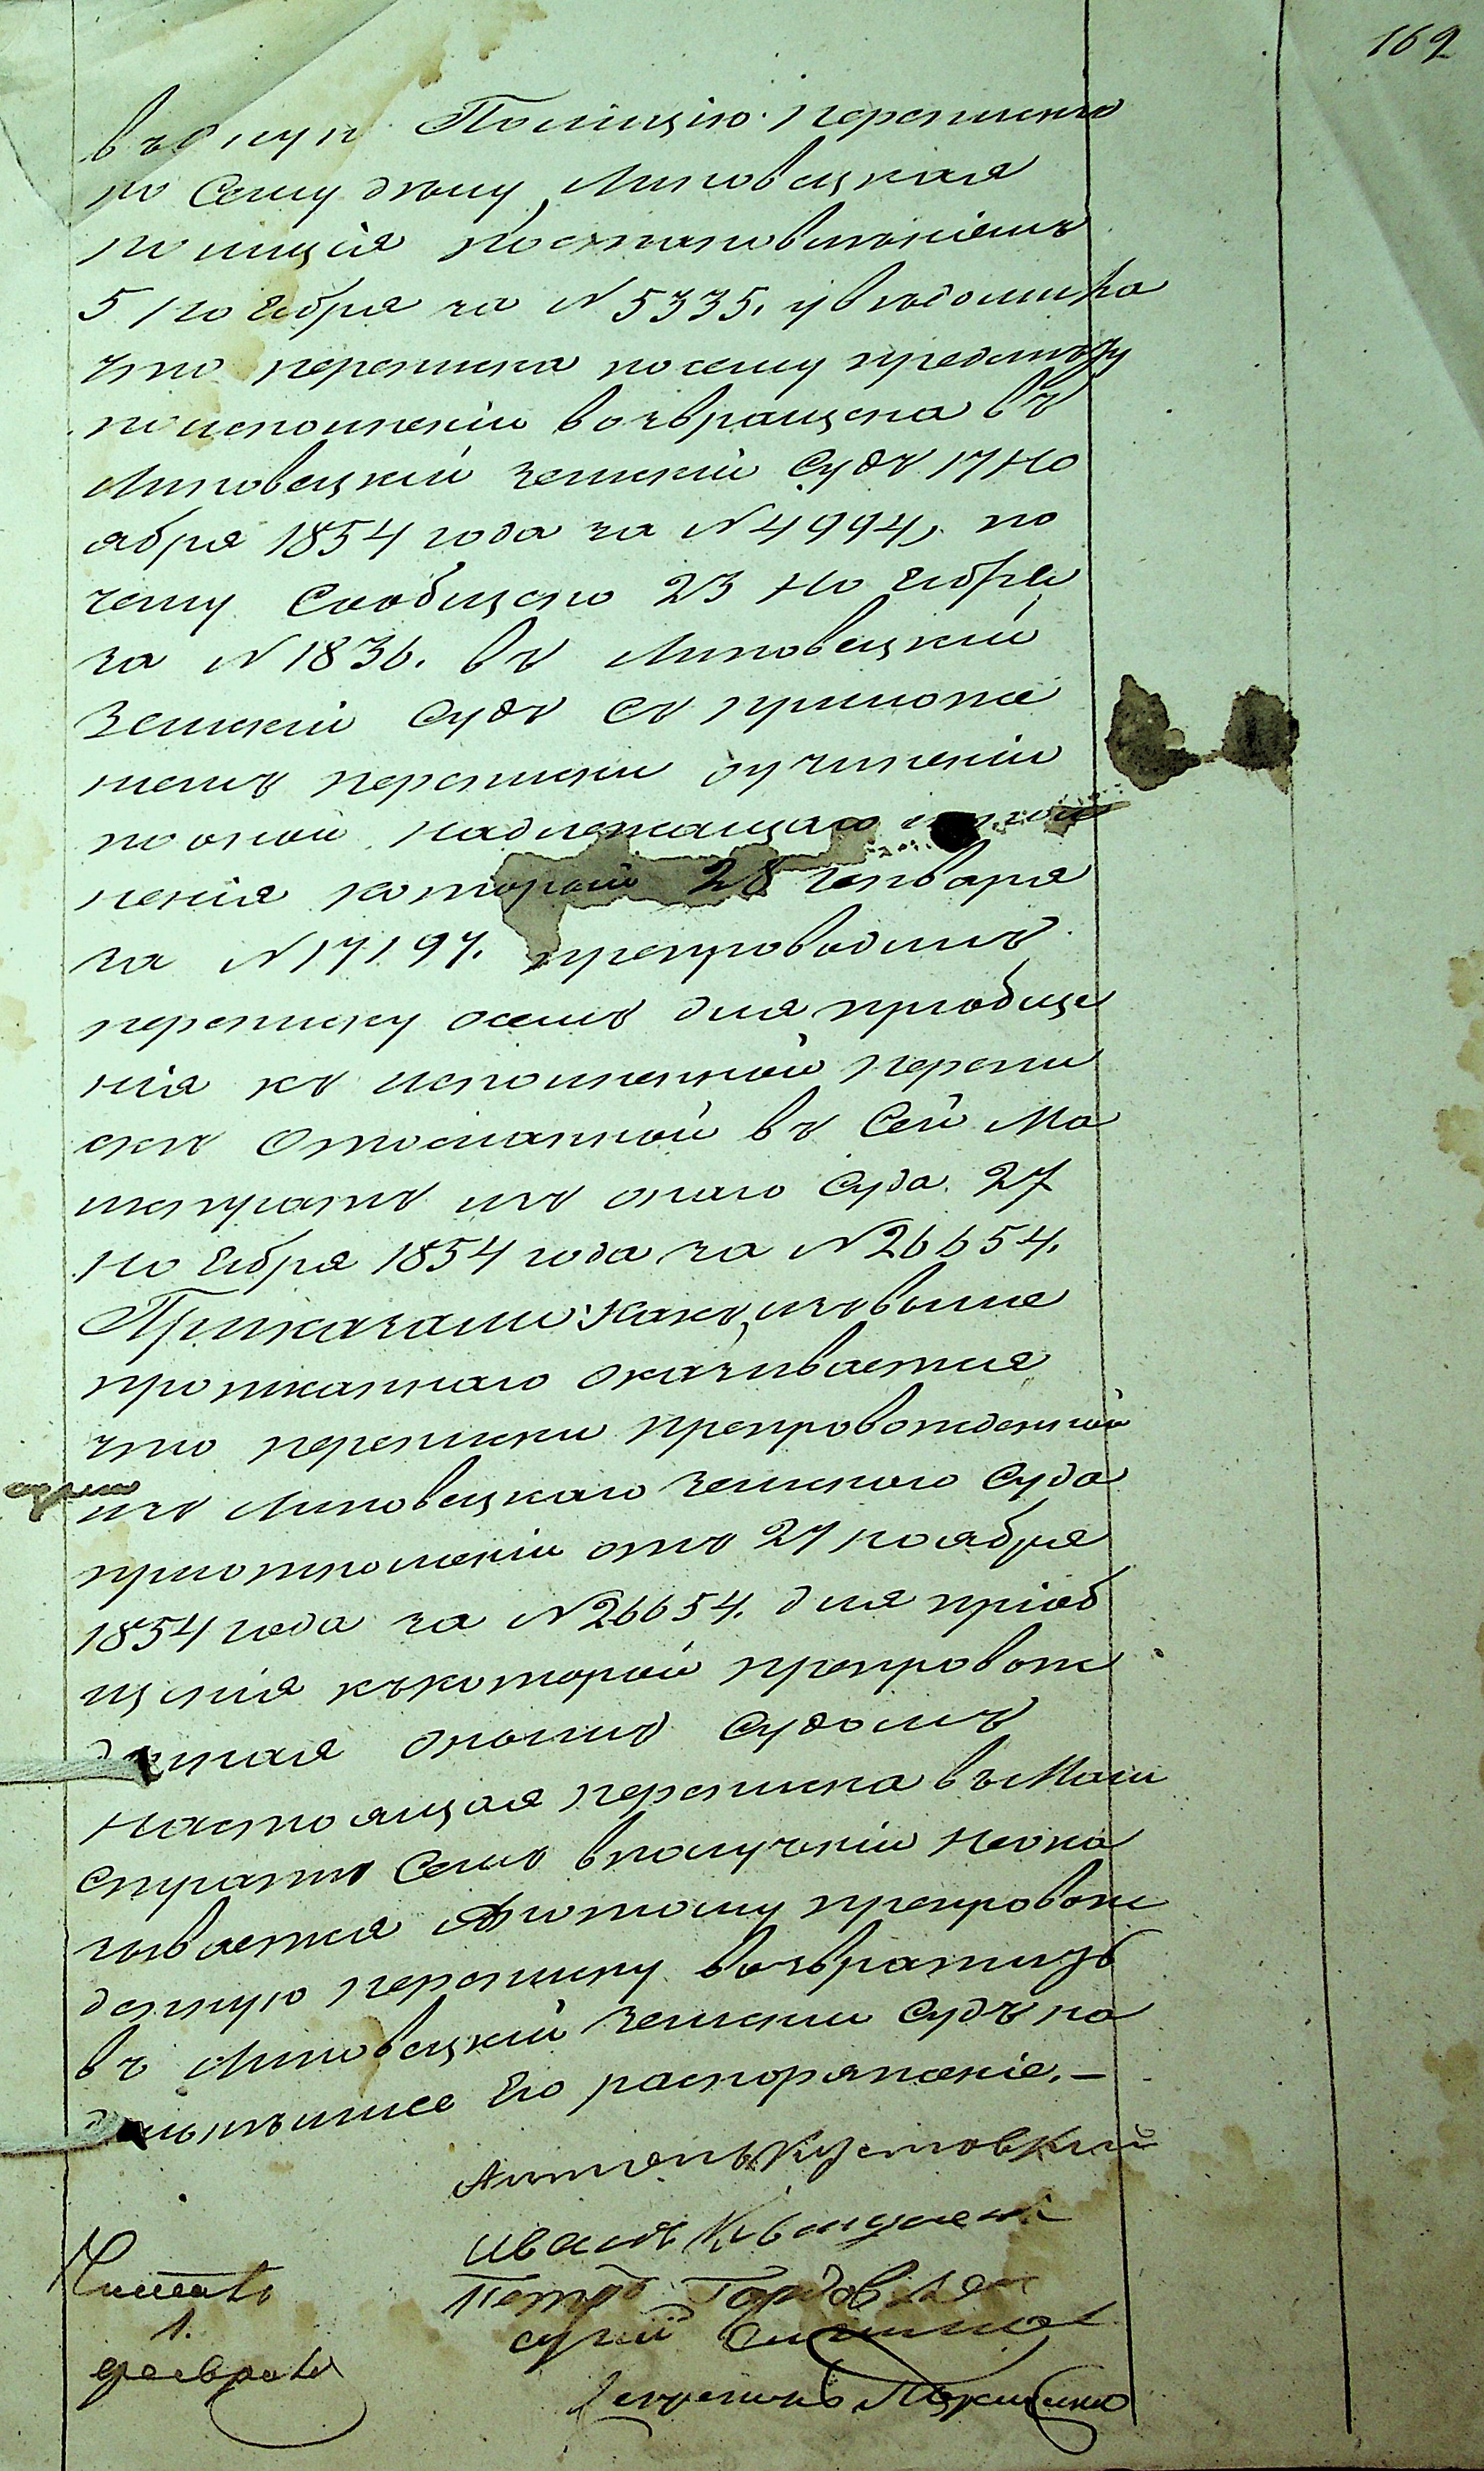 162
Полицію переписки
по сему дѣлу, Липовецкая
полиція постановленіемъ
5 Ноября за N 5335. увѣдомила
что переписка посему предмету
поисполненіи возвращена въ
Липовецкій земскій Судъ 17 Но
ября 1854 года за N 4994, по
чему Сообщено 23 Ноября
за N 1836. въ Липовецкій
Земскій Судъ съ приложе
ніемъ переписки о учиненіи
по оной надлежащаго
ненія который 28 Генваря
за N 17197. препроводилъ
переписку осемъ для приобще
нія къ исполненной перепи
скѣ Отосланной въ Сей Ма
гистратъ изъ онаго Суда 27
Ноября 1854 года за N 26654.
Приказали: какъ изъвыше
прописаннаго оказывается
что переписки препровожденной
изъ Липовецкаго Земского Суда
приотношеніи отъ 27 ноября
1854 года за N 26654. для пріоб
щенія къкоторой препровож
денная онымъ Судомъ
настоящая переписка въМаги
стратѣ Семъ вполученіи неока
зывается Апотому препровож
денную переписку возвратить
въ Липовецкій Земскій Судъ на
дальнѣйшее Его распоряженіе.—
Иванъ
Петръ
Читалъ
1.
февраля
Секретарь